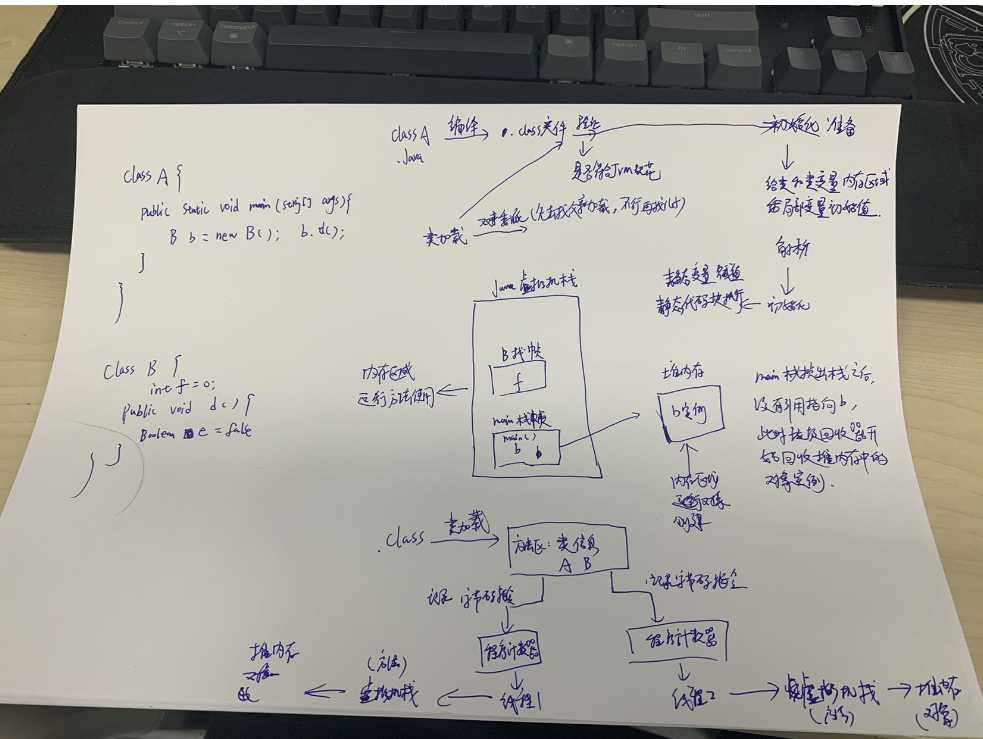 class A {
public static void main (string[] args){
B b = new B(); b.d();
}
}
class B {
int f = 0;
public void d() {
Boolean e = false
}
}
class A 编译 .class文件 验证 初始化 准备
.java
是否符合Jvm规范
给类变量内存区域
给局部变量初始值
类加载 双亲委派 (先去找父亲加载, 不行再找他)
解析
静态变量 赋值
静态代码块执行 初始化
Java虚拟机栈
B栈帧
f
内存区域
运行方法使用
main栈帧
main()
b
堆内存
b实例
内存区域
对象
创建
main栈帧出栈之后,
没有引用指向b,
此时垃圾回收器开
始回收堆内存中的
对象实例.
.class 类加载 方法区: 类信息
A B
记录字节码指令 记录字节码指令
程序计数器 程序计数器
线程1 线程2
(方法)
虚拟机栈
堆内存
对象
虚拟机栈
(方法)
堆内存
(对象)